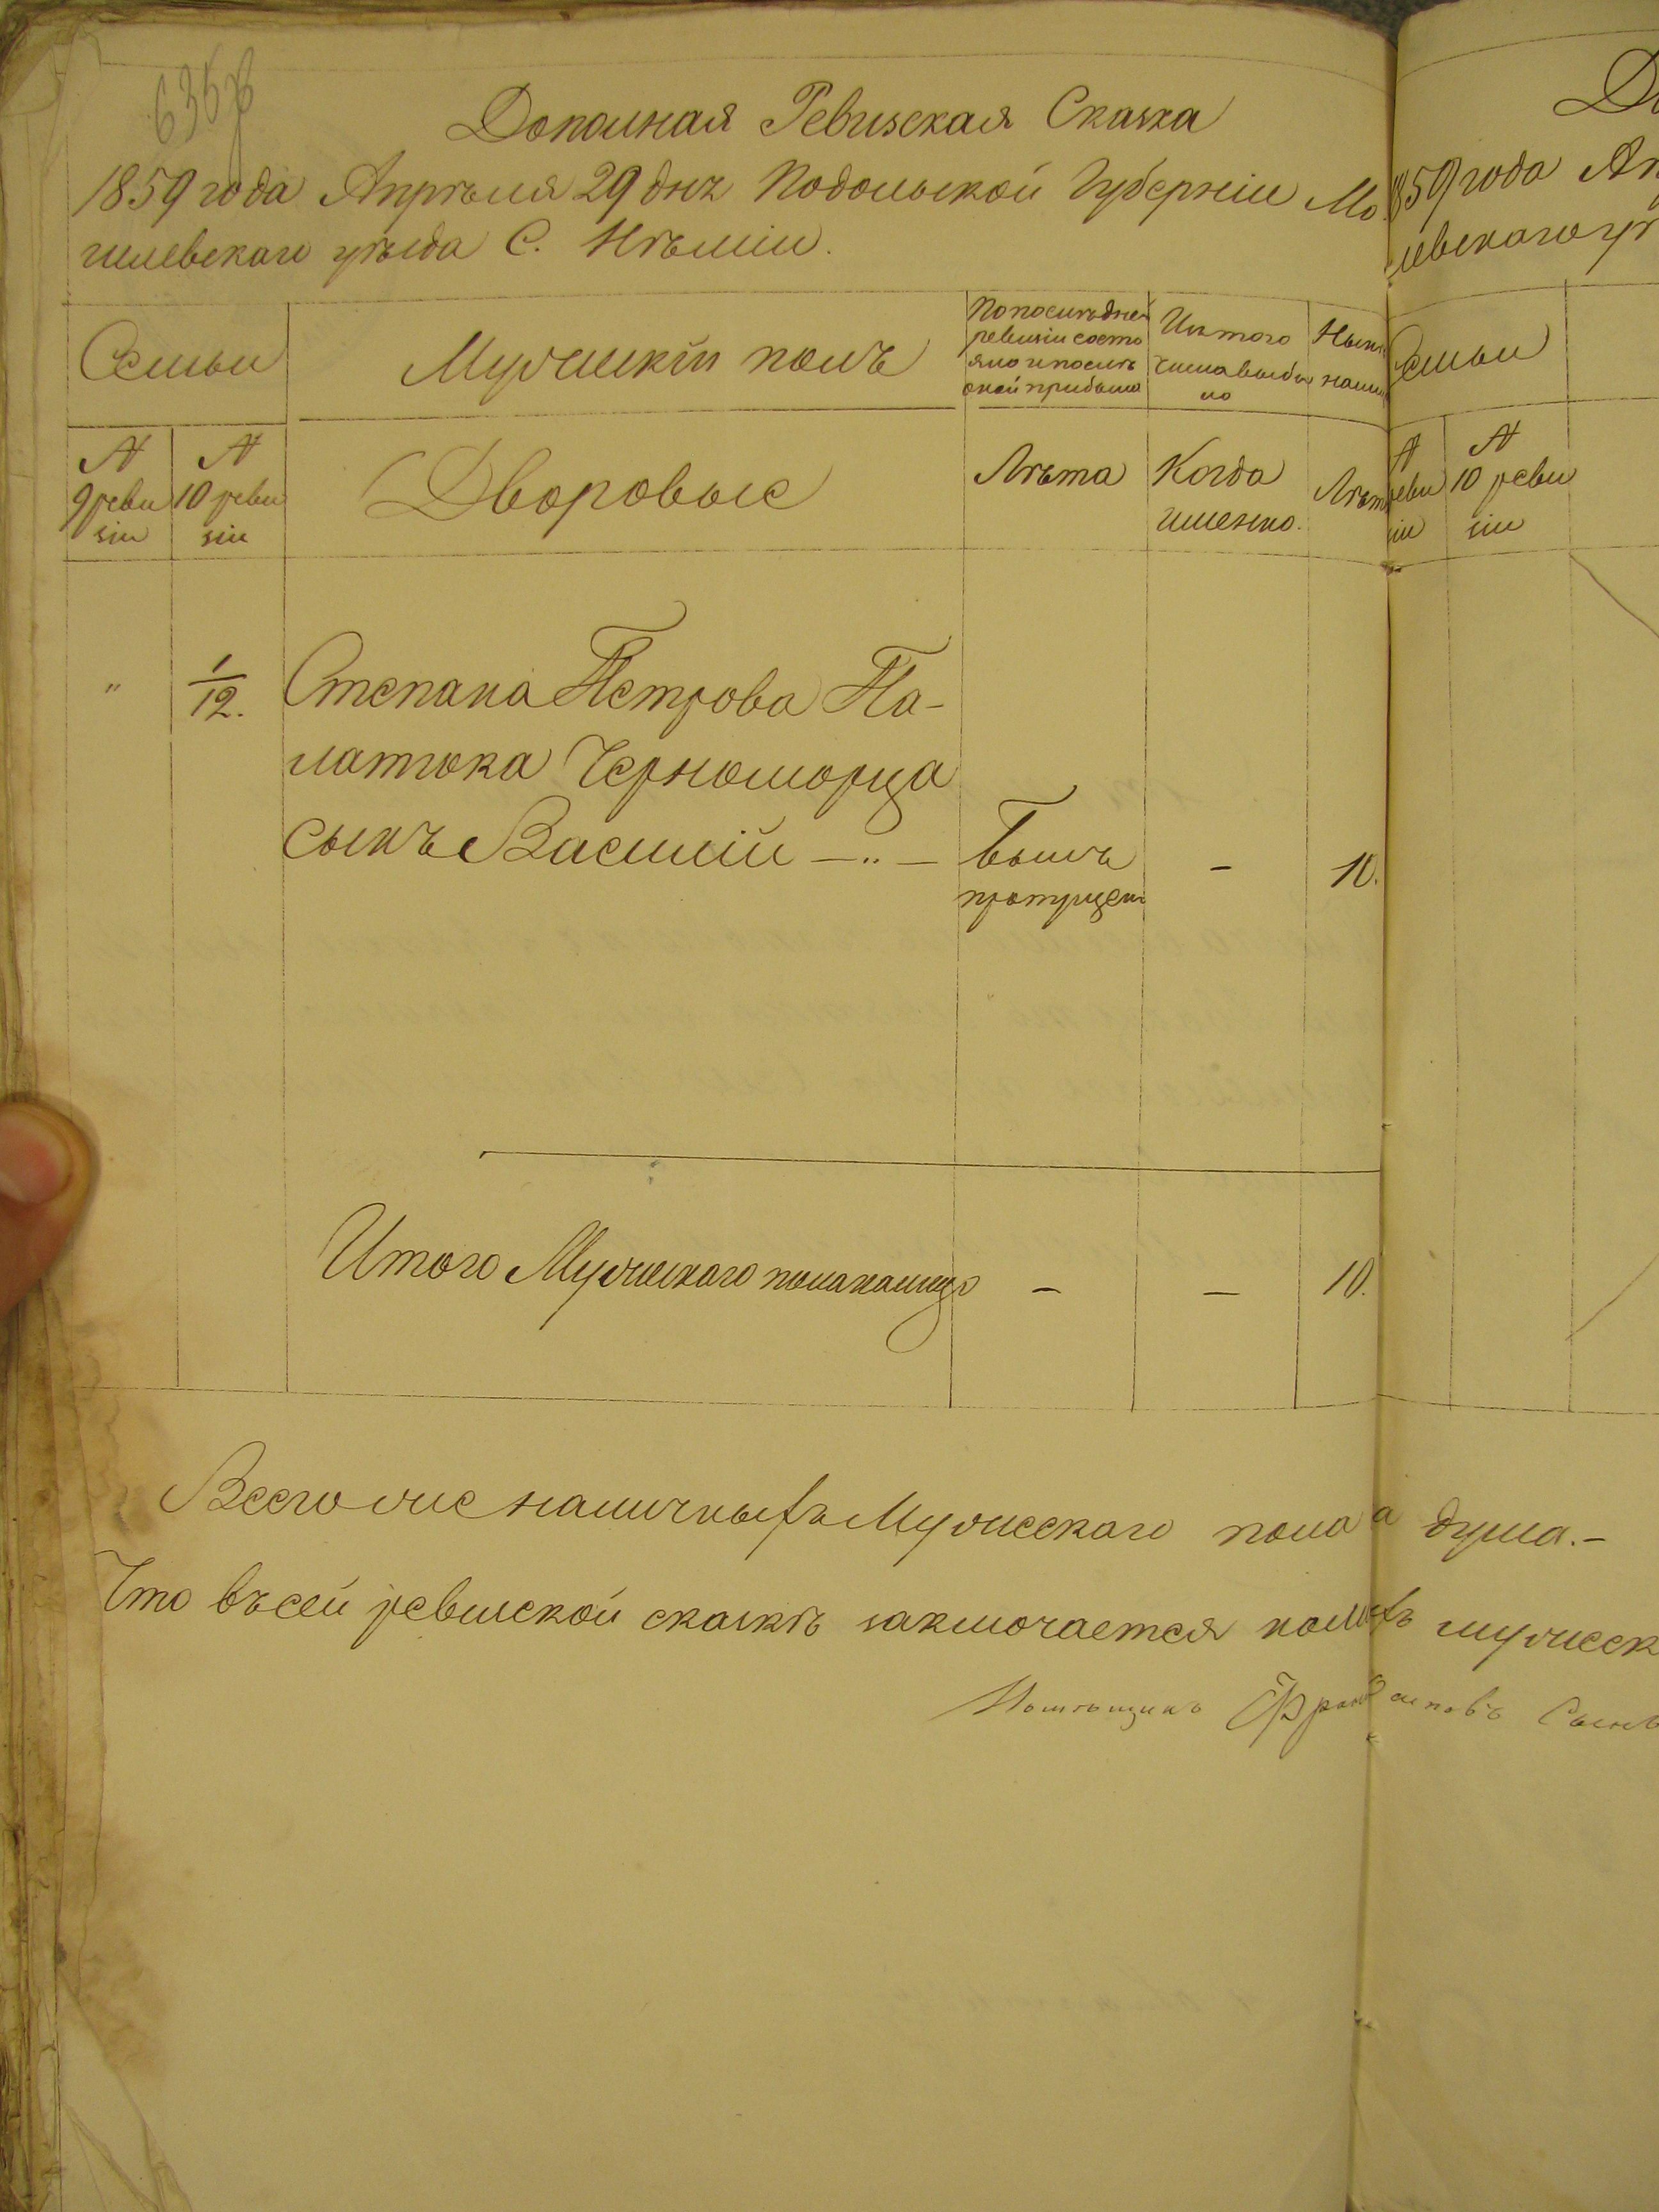 636
Дополная Ревизская Сказка
1859 года Апрѣля 29 днъ Подольской Губерніи Мо
гилевскаго уѣзда С. Нѣмии.
Семьи
Мужескій полъ
По послѣдней
ревизіи состо
яло и послѣ
оной прибыло
Изъ того
числа выбы
ло
Нынѣ
нали
№
9 реви
зіи
№
10 реви
зіи
Дворовые
Лѣта
Когда
именно.
Лѣта
" 1/12. Степана Петрова Па-
латюка Черноморца
сынъ Василій — „ — былъ — 10.
пропущен
Итого Мужескаго пола налицо — — 10.
Всего же наличныхъ Мужескаго пола
а душа.-
Что въ сей ревизской сказкѣ заключается
мужеск
Сынъ
Д
859 года Ап
левскаго уѣ
Семьи
№
реви
зіи
№
10 реви
зіи